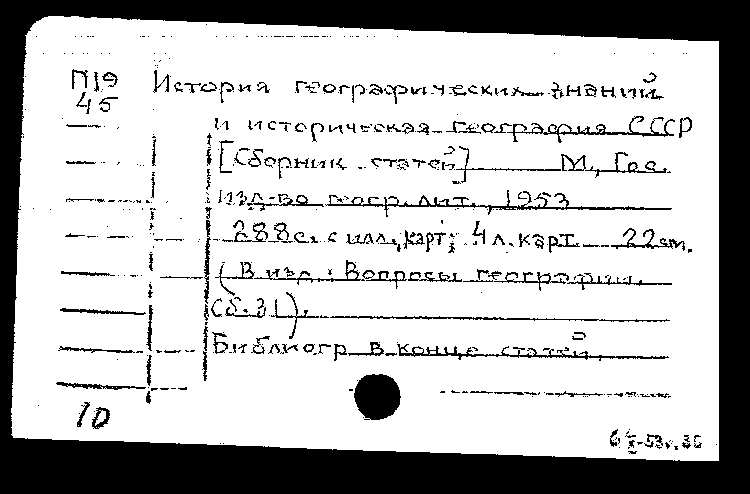 П19 История географических знаний
45
и историческая география СССР
[Сборник статей] М., Гос.
изд-во геогр. лит., 1953
288с. с илл., карт; 4 л. карт. 22см.
(В изд.: Вопросы географии.
Сб. 31).
Библиогр. в конце статей.
10